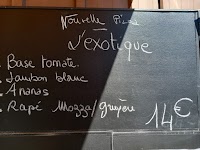 Nouvelle Pizza
L'exotique
. Base tomate.
. Jambon blanc
. Ananas
. Rapé Mozza/gruyère
14€